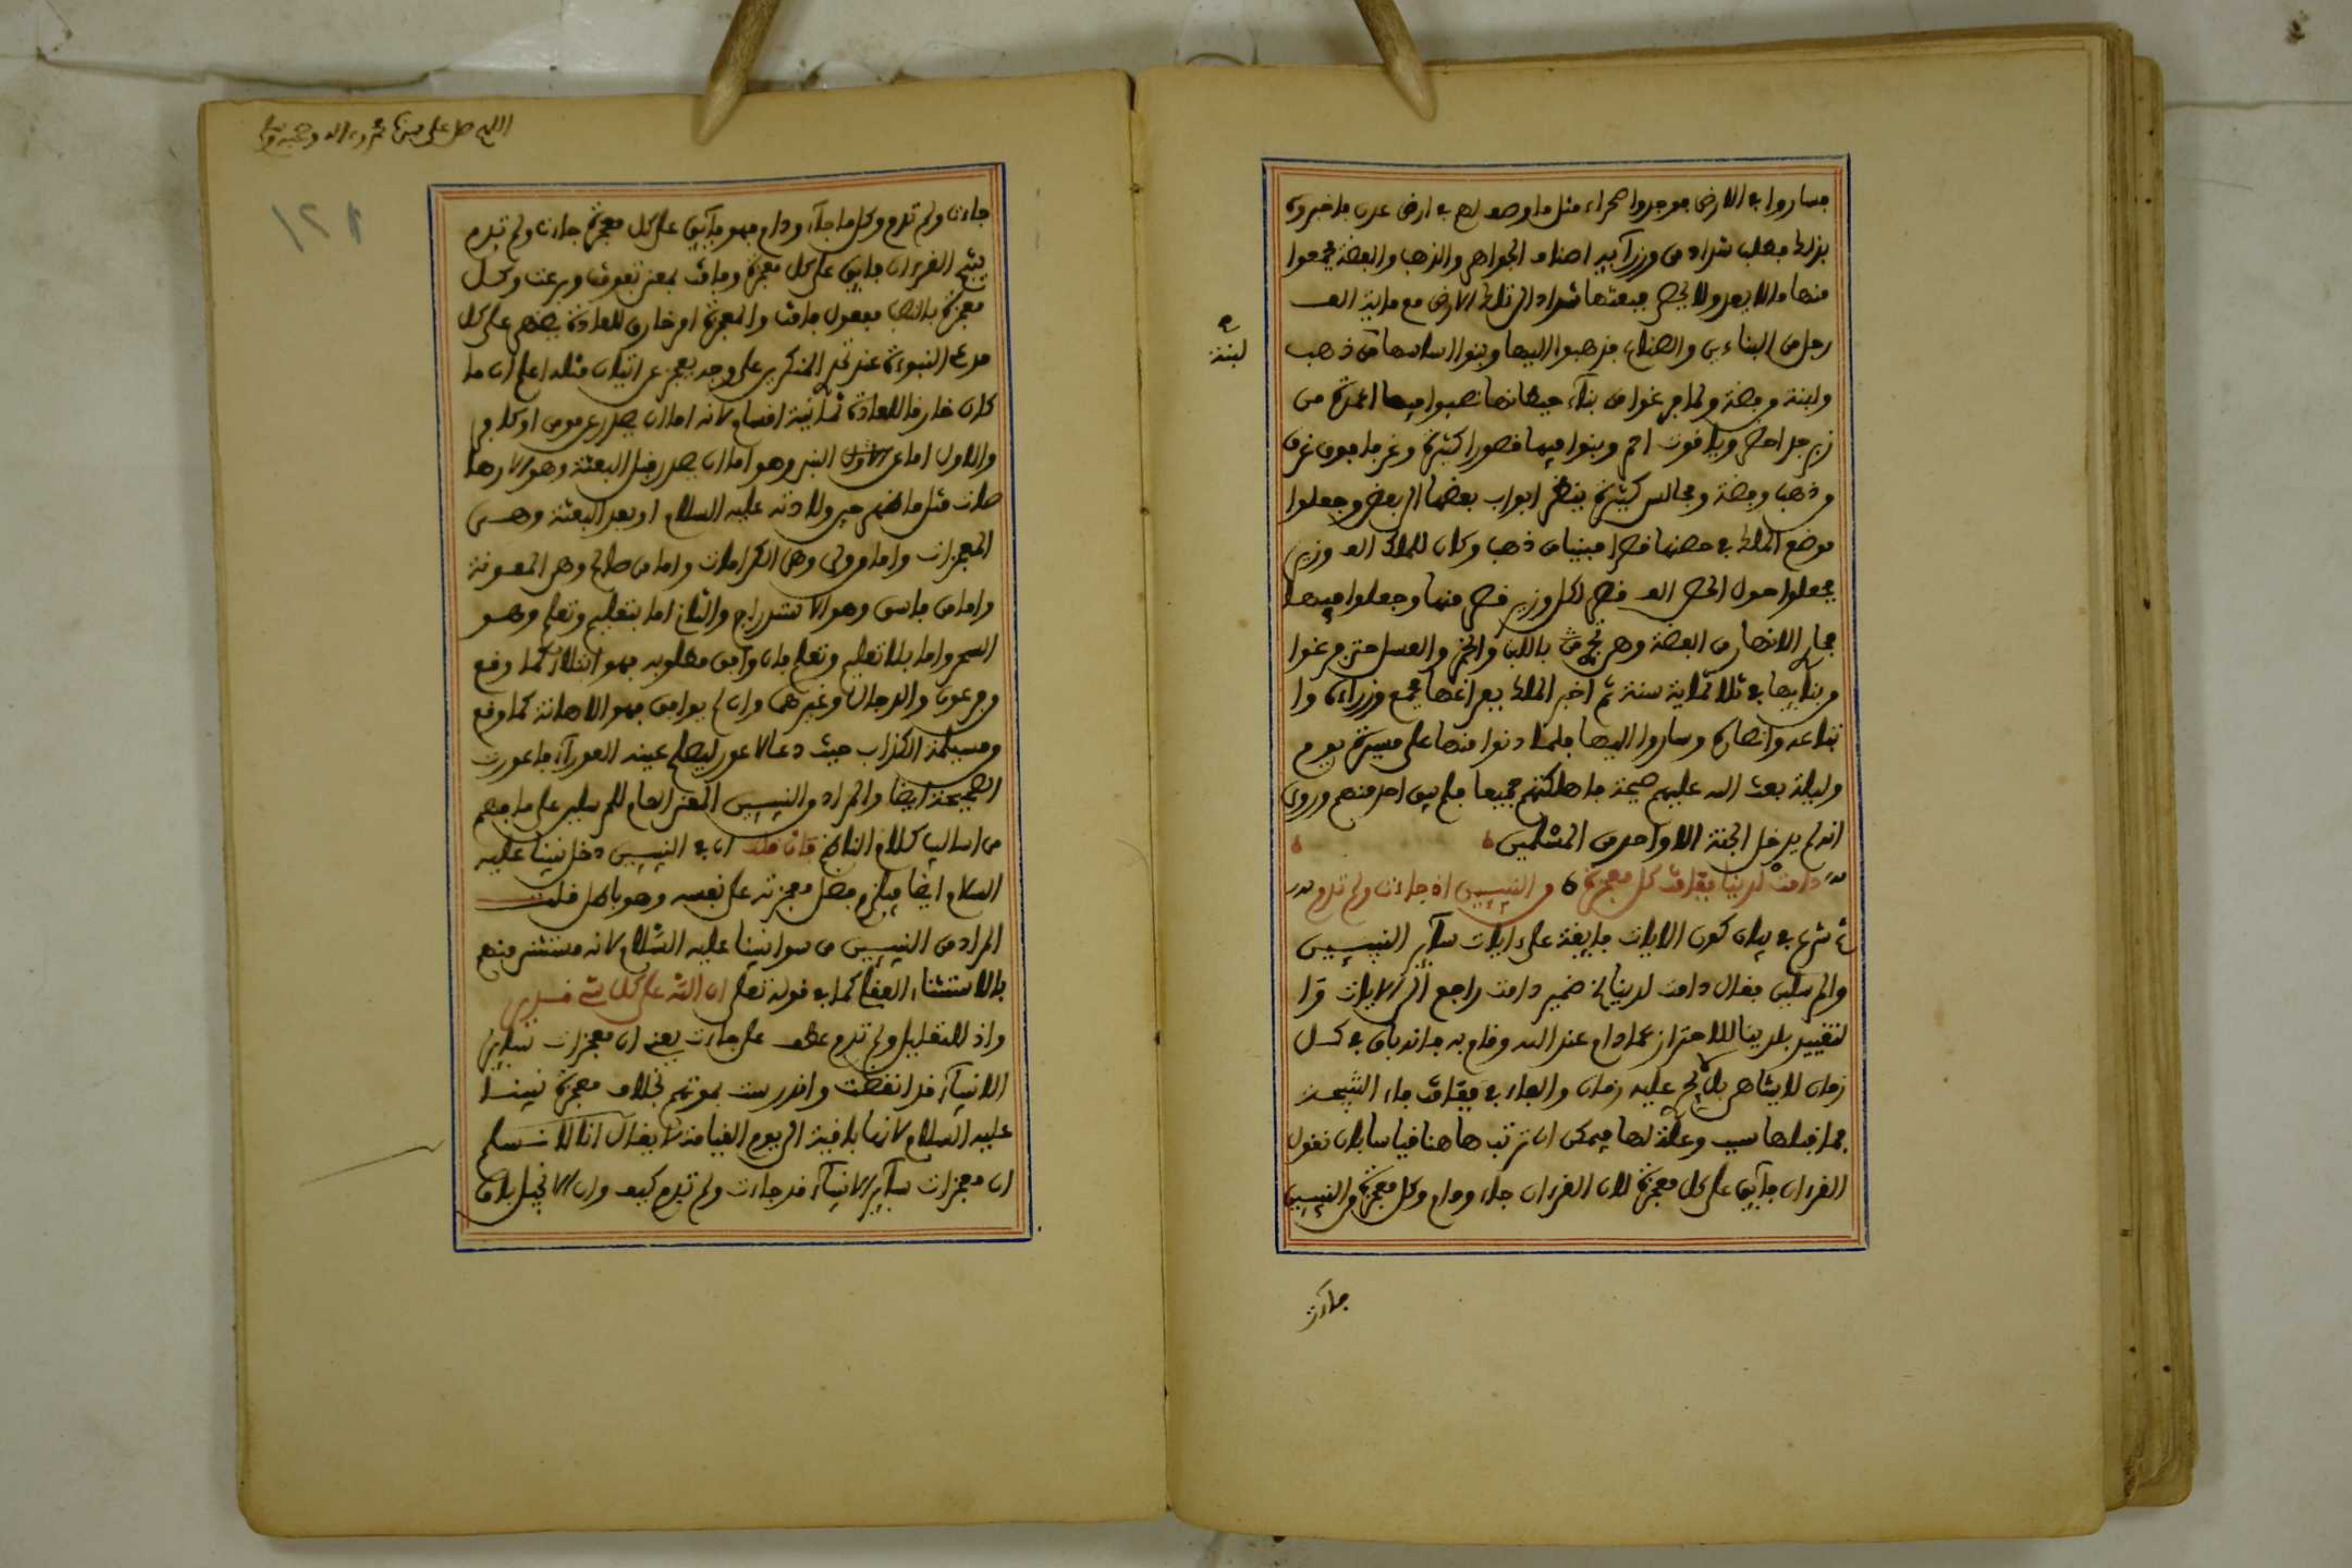 فساروا في الارض فوجدوا صحراء مثل ما وصف لهم في ارض عدن فاخبروه
بذلك فطلب شداد من وزرآيه اصناف الجواهر والذهب والفضة فجمعوا
منها ما لا يعد ولا يحصى فبعثها شداد الى تلك الارض مع ماية الف
رجل من البناءين والصناع فذهبوا اليها وبنوا اساسها من ذهب
لبنة
ولبنة وفضة ولما فرغوا من بنآء حيطانها نصبوا فيها اعمدة من
زبرجد اخضر وياقوت احمر وبنوا فيها قصورا كثيرة وغرفا فوق غرف
من ذهب وفضة ومجالس كثيرة ينظر ابواب بعضها الى بعض وجعلوا
موضع الملك في حصنها قصرا مبنيا من ذهب وكان للملك الف وزير
فجعلوا حول الحصن الف قصر لكل وزير قصر منها وجعلوا فيها
مجار الانهار من الفضة وهي تجري باللبن والخمر والعسل حتى فرغوا
من بنايها في ثلاثماية سنة ثم اخبر الملك بفراغها فجمع وزراءه وا
تباعه وانصاره وساروا اليها فلما دنوا منها على مسيرة يوم
وليلة بعث الله عليهم صيحة فاهلكتهم جميعا فلم يبق احد منهم وروي
انه لم يدخل الجنة الا واحد من المسلمين
دامت لدينا ففاقت كل معجزة من النبيين اذ جاءت ولم تدم
ثم شرع في بيان كون الايات فايقة على ايات سآير النبيين
والمرسلين فقال دامت لدينا الخ ضمير دامت راجع الى الايات وا
لتقييد بلدينا للاحتراز عما دام عند الله وقام به فانه باق في كل
زمان لا يشاهر بل لا يجري عليه زمان والفاء في ففاقت فاء النتيجة
فما قبلها سبب وعلة لها فيمكن ان ترتب هاهنا قياسا بان نقول
القرءان فآيق على كل معجزة لان القرءان جاء ودام وكل معجزة من النبيين
جاءت
اللهم صل على سيدنا محمد وءاله وصحبه وسلم
١٢١
جاءت ولم تدم وكل ما جآء ودام فهو فآيق على كل معجزة جاءت ولم تدم
ينتج القرءان فايق على كل معجزة وفاقت بمعنى تفوقت وبرعت وكل
معجزة بالنصب مفعول فاقت والمعجزة امر خارق للعادة يظهر على كل
مدعي النبوة عند تحدي المنكرين على وجه يعجز عن اتيان مثله اعلم ان ما
كان خارقا للعادة ثمانية اقسام لانه اما ان يصدر عن مومن او كافر
والاول اما عن الاول النبي وهو اما ان يصدر قبل البعثة وهو الارها
صات مثل ما ظهر حين ولادته عليه السلام او بعد البعثة وهي
المعجزات واما من ولي وهي الكرامات واما من صالح وهي المعونة
واما من فاسق وهو الاستدراج والثاني اما بتعليم وتعلم وهو
السحر واما بلا تعليم وتعلم فان وافق مطلوبه فهو ابتلاء كما وقع
من فرعون والدجال وغيرهما وان لم يوافق فهو الاهانة كما وقع
من مسيلمة الكذاب حيث دعا لاعور ليصلح عينه العورآء فاعورت
الصحيحة ايضا والمراد من النبيين المعنى العام للمرسلين على ما يفهم
من اساليب كلام الناظم فان قلت ان في النبيين دخل نبينا عليه
السلام ايضا فيلزم فضل معجزته على نفسه وهو باطل قلت
المراد من النبيين من سوا نبينا عليه السلام لانه مستثنى منهم
بالاستثناء العقلي كما في قوله تعلى ان الله على كل شيء قدير
واذ للتعليل ولم تدم عطف على جاءت يعني ان معجزات سآير
الانبيآء قد انقضت واندرست بموتهم بخلاف معجزة نبينا
عليه السلام لانها باقية الى يوم القيامة لا يقال انا لا نسلم
ان معجزات سآير الانبيآء قد جاءت ولم تدم كيف وان الانجيل باق